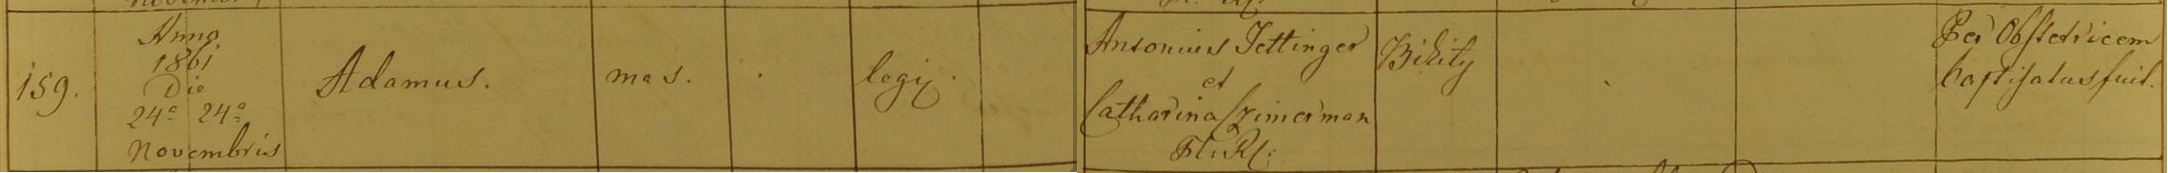 159.
Anno
1861
Die
24ᵃ 24ᵃ
Novembris
Adamus.
mas.
legi.
Antonius Tettinger
et
Catharina Czimerman
Bikity
Per Obstetricem
baptisatus fuit.